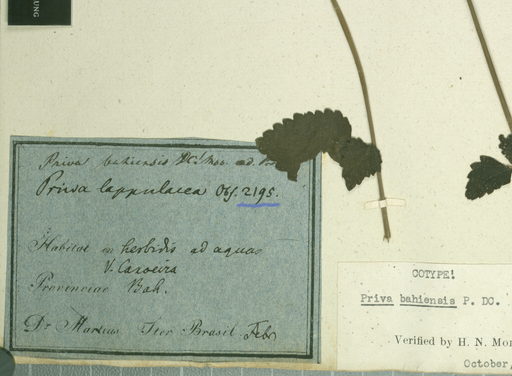 UNG
Priva bahiensis DC! Mss. ad.
Priva lappulacea Obs. 2195.
Habitat in herbidis ad aquas
V. Caxoeira
Provinciae Bah.
Dr Martius Iter Brasil. Febr
COTYPE!
Priva bahiensis P. DC.
Verified by H. N. Mo
October,